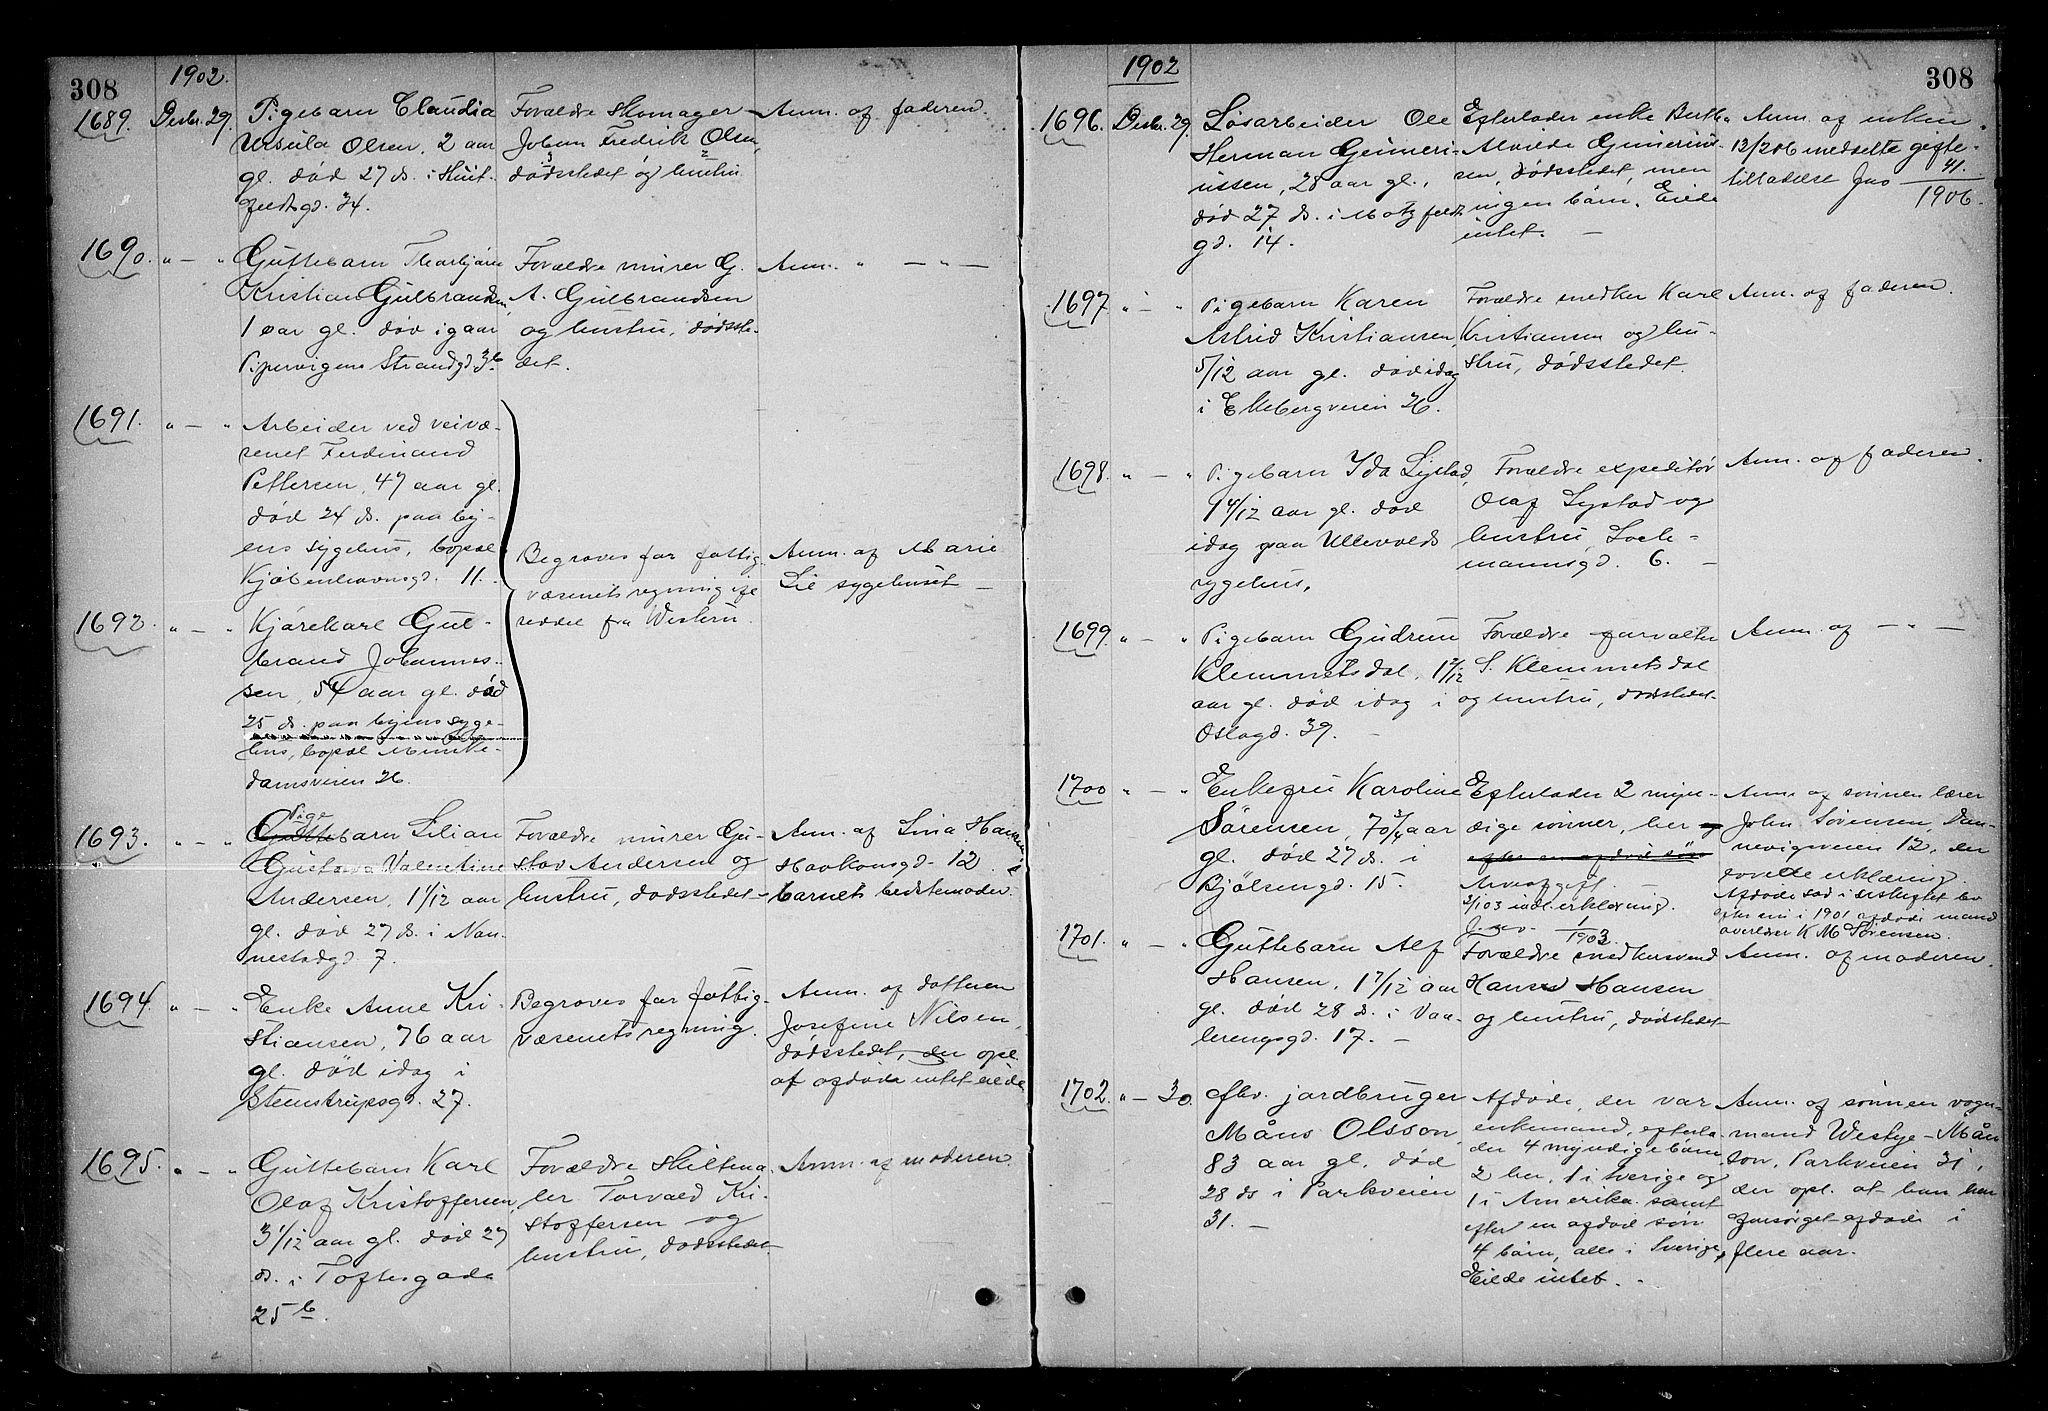 308
1902.
1689. Desbr. 29. Pigebarn Claudia
Ursula Olsen, 2 aar
gl. død 27 ds. i Huit-
feldtsgd. 34.
Forældre skomager
Johan Fredrik Olsen,
dødsstedet og hustru
Anm. af faderen.
1690. " — " Guttebarn Thorbjørn
Kristian Gulbrandsen,
1 aar gl. død igaar
Pipervigens Strandgd. 3b
Forældre murer G.
A. Gulbrandsen
og hustru, dødsste-
det.
Anm. " — " —
1691. " — " Arbeider ved veivæ-
senet Ferdinand
Pettersen, 47 aar gl.
død 24 ds. paa by-
ens sygehus, bopæl
Kjøbenhavnsgd. 11.
Begraves for fattig-
væsenets regning ifl.
seddel fra Westru
Anm. af Marie
Lie sygehuset —
1692. " — " Kjørekarl Gul-
brand Johannes-
sen, 54 aar gl. død
25 ds. paa byens syge-
hus, bopæl Munke-
damsveien 26.
1693. " — " Pige
Guttebarn Lilian
Gustava Valentine
Andersen, 1 1/12 aar
gl. død 27 ds. i Nan-
nestadgd. 7.
Forældre murer Gu-
stav Andersen og
hustru, dødsstedet —
Anm. af Lina
Haakonsgd. 12
barnets bedstemoder.
1694. " — " Enke Anne Kri-
stiansen, 76 aar
gl. død idag i
Stenstrupsgd. 27.
Begraves for fattig-
væsenets regning.
Anm. af datteren
Josefine Nilsen,
dødsstedet, der opl.
at afdøde intet eiede
1695. " — " Guttebarn Karl
Olaf Kristoffersen,
3 1/12 aar gl. død 27
ds. i Toftesgade
25 b.
Forældre skiltma-
ler Torvald Kri-
stoffersen og
hustru, dødsstedet
Anm. af moderen.
1902
308
1696. Desbr. 29. Løsarbeider Ole
Herman Gunneri-
ussen, 28 aar gl.,
død 27 ds. i Motzfeldt
gd. 14.
Efterlader enke Berth
Alvilde Gunerius-
sen, dødsstedet, men
ingen børn. Eiede
intet. —
Anm. af enken.
13/2 06 meddelte gifte-
tilladelse Jno 41.
1906.
1697. " — " Pigebarn Karen
Astrid Kristiansen,
5/12 aar gl. død idag
i Ekebergveien 26.
Forældre snedker Karl
Kristiansen og hu-
stru, dødsstedet.
Anm. af faderen.
1698. " — " Pigebarn Ida Lystad,
9 4/12 aar gl. død
idag paa Ullevolds
sygehus.
Forældre expeditør
Olaf Lystad og
hustru,
mannsgd. 6. —
Anm. af faderen.
1699. " — " Pigebarn Gudrun
Klemmetsdal, 1 7/12
aar gl. død idag i
Oslogd. 39.
Forældre forvalter
S. Klemmetsdal
og hustru, dødsstedet
Anm. af — " —
1700 " — " Enkefru Karoline
Sørensen, 70 3/4 aar
gl. død 27 ds. i
Bjølsengd. 15.
Efterlader 2 myn-
dige sønner, her og
efter en afdød søn
Arveafgift. —
2/1 03 indl. erklæring.
J. no 1/1903.
Anm. af sønnen lærer
John Sørensen, Dan-
nevigsveien 12, der
lovede erklæring.
Afdøde sad i uskiftet bo
efter sin i 1901 afdøde mand
overlærer K M Sørensen.
1701. " — " Guttebarn Alf
Hansen, 1 7/12 aar
gl. død 28 ds. i Vaa-
lerengsgd. 17. —
Forældre snedkersvend
Hans Hansen
og hustru, dødsstedet
Anm. af moderen.
1702. " — 30. fhv. jordbruger
Måns Olsson,
83 aar gl. død
28 ds i Parkveien
31. —
Afdøde, der var
enkemand, efterla-
der 4 myndige børn
2 her, 1 i Sverige og
1 i Amerika samt
efter en afdød søn
4 børn, alle i Sverige.
Eiede intet. —
Anm. af sønnen vogn-
mand Westye Mån
son, Parkveien 31,
der opl. at han har
forsørget afdøde i
flere aar.